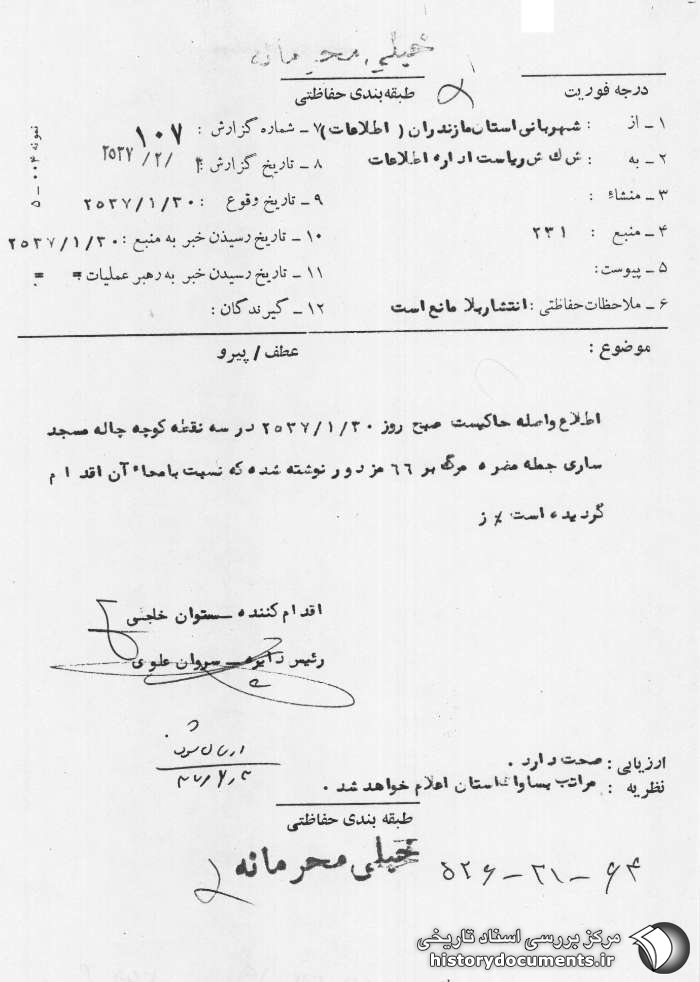 خیلی محرمانه
درجه فوریت
طبقه‌بندی حفاظتی
۱ـ از : شهربانی استان مازندران (اطلاعات)
۷ـ شماره گزارش : ۱۰۷
۲ـ به : ش ک ش ریاست اداره اطلاعات
۸ـ تاریخ گزارش : ۴/۲/۲۵۳۷
۳ـ منشاء :
۹ـ تاریخ وقوع : ۲۵۳۷/۱/۳۰
۴ـ منبع : ۲۳۱
۱۰ـ تاریخ رسیدن خبر به منبع : ۲۵۳۷/۱/۳۰
۵ـ پیوست :
۱۱ـ تاریخ رسیدن خبر به رهبر عملیات : = =
۶ـ ملاحظات حفاظتی : انتشار بلا مانع است
۱۲ـ گیرندگان :
نمونه ۰۰۴ ـ ۵
موضوع :
عطف / پیرو
اطلاع واصله حاکیست صبح روز ۲۵۳۷/۱/۳۰ در سه نقطه کوچه چاله مسجد
ساری جمله مضره مرگ بر ۶۶ مزدور نوشته شده که نسبت بامحاء آن اقدام
گردیده است ٪ ز
اقدام کننده ـ ستوان خلجی
رئیس دایره ـ سروان علوی
ارسال شود
ارزیابی : صحت دارد .
نظریه : مراتب بساواک استان اعلام خواهد شد .
طبقه بندی حفاظتی
خیلی محرمانه
۶۴ - ۲۱ - ۵۲۶
مرکز بررسی اسناد تاریخی
historydocuments.ir